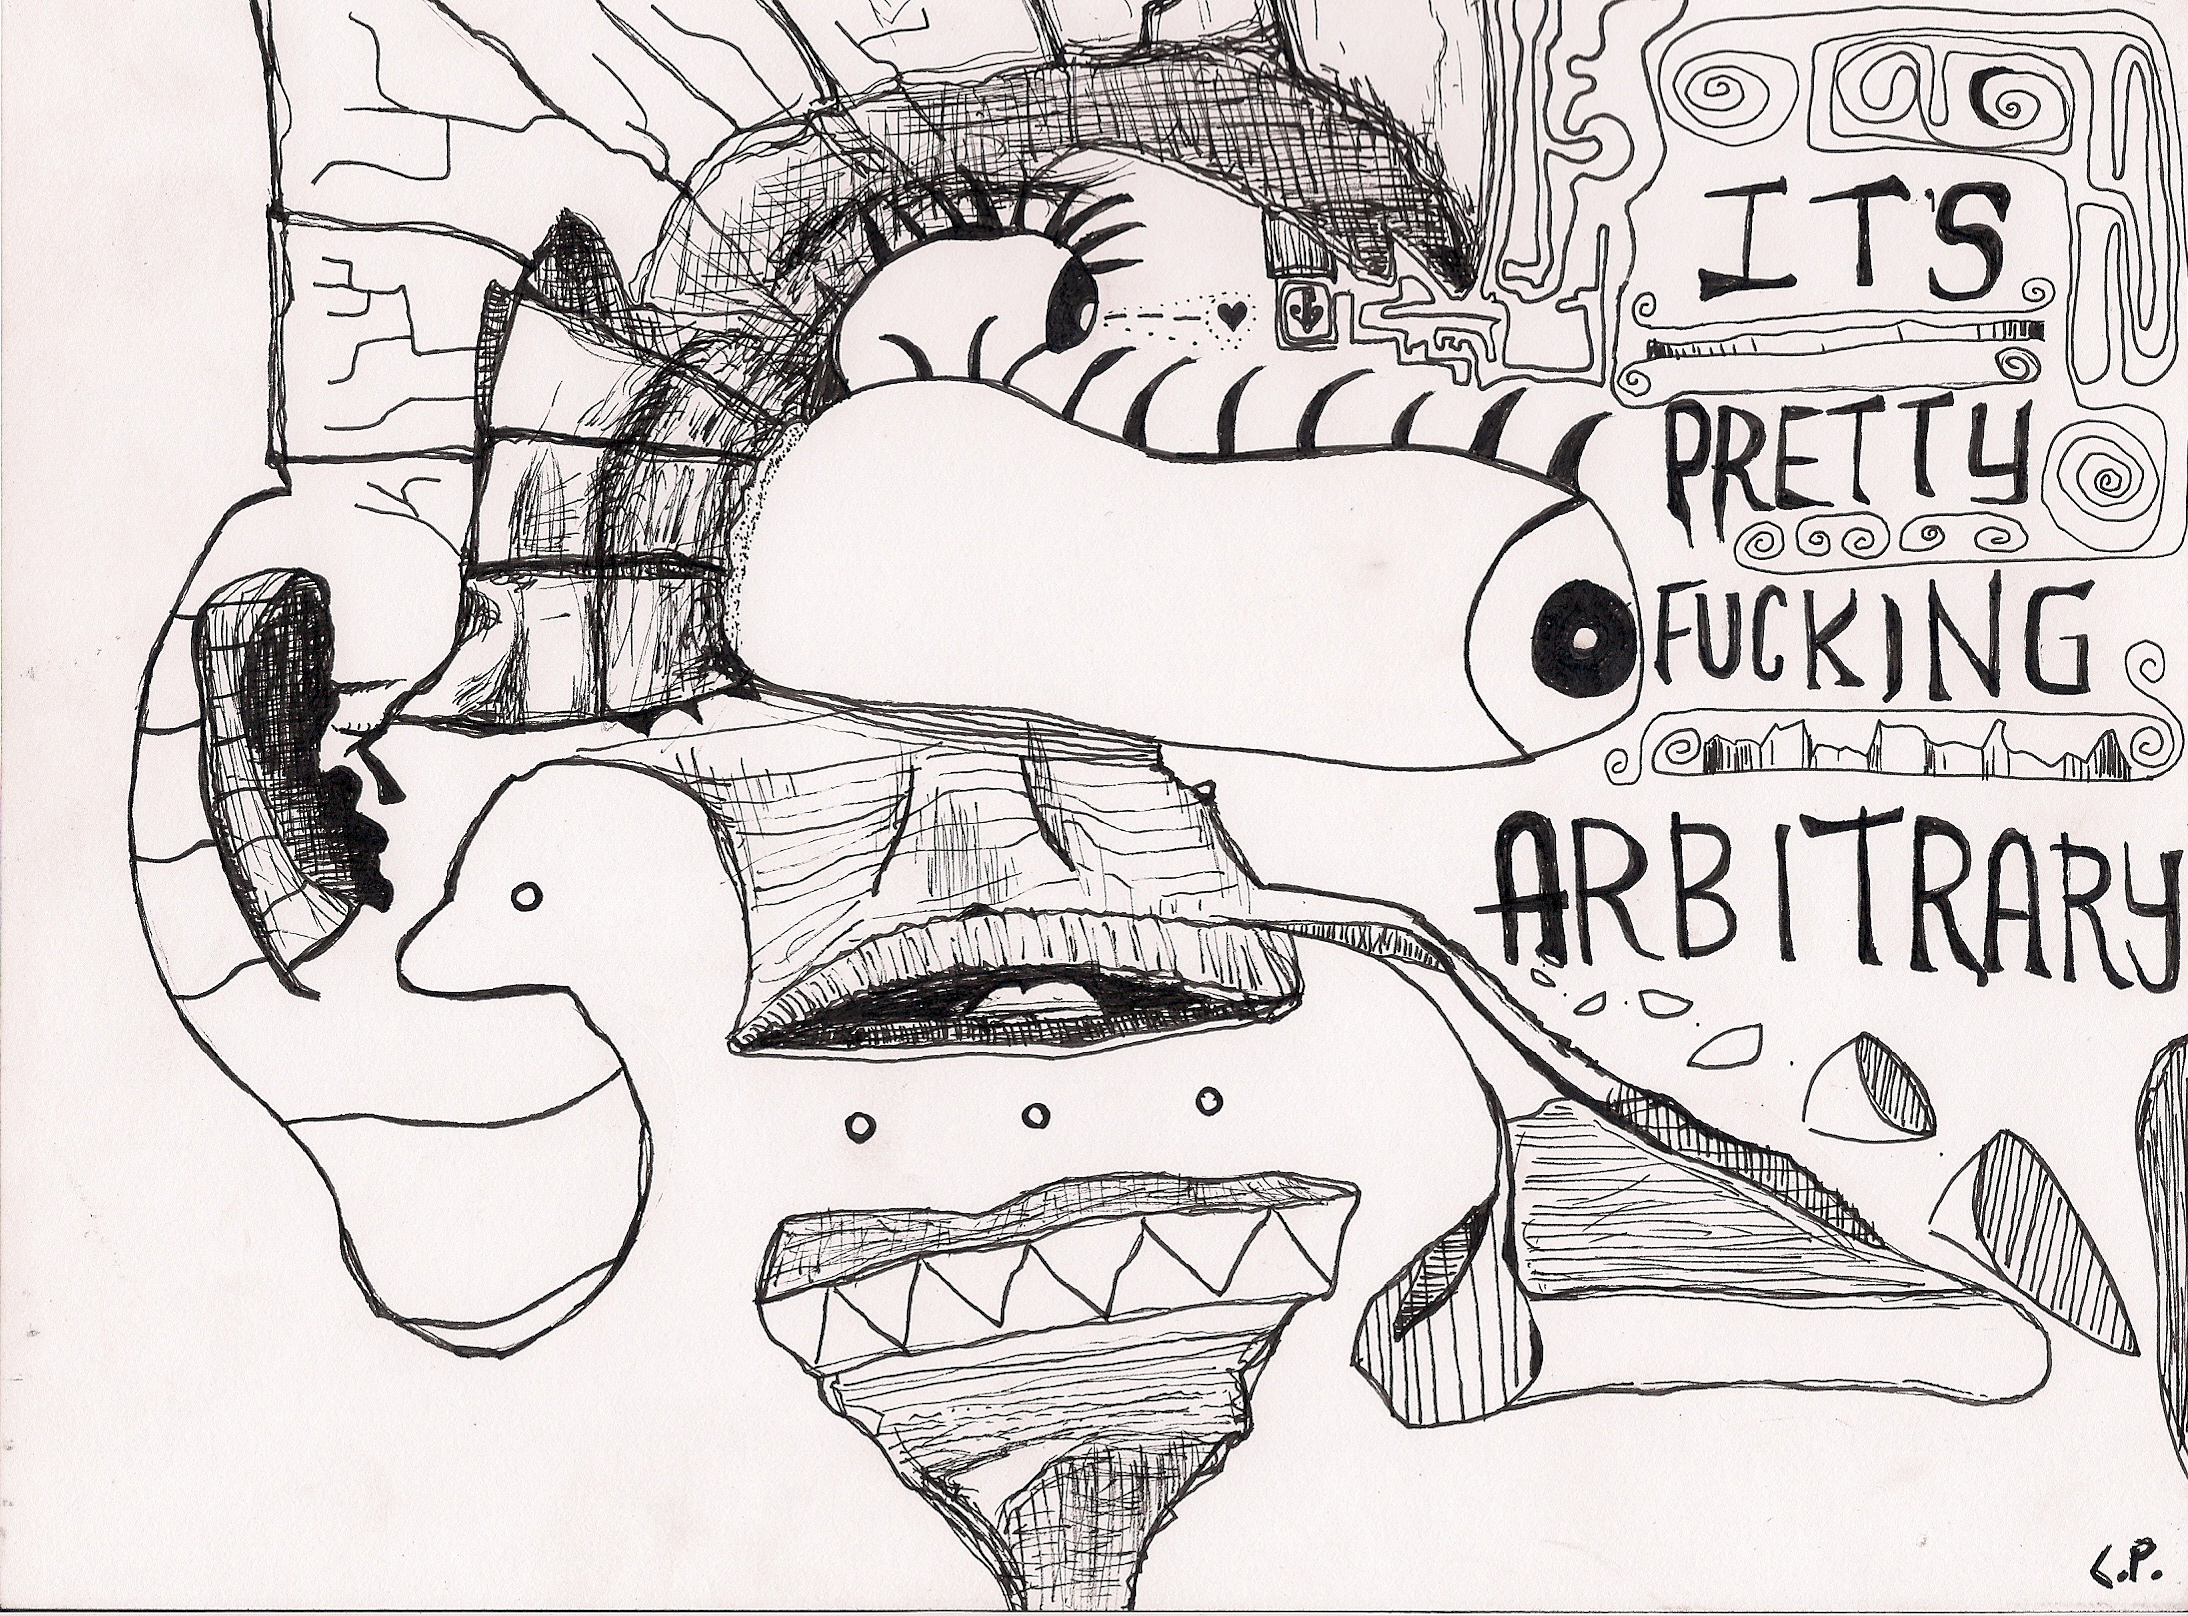 IT'S
PRETTY
FUCKING
ARBITRARY
C.P.